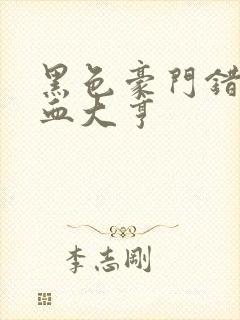 黑色豪門錯
血大亨
李志剛